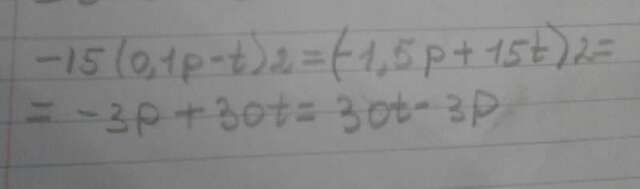 -15(0,1p-t)2=(-1,5p+15t)2=
= -3p+30t=30t-3p